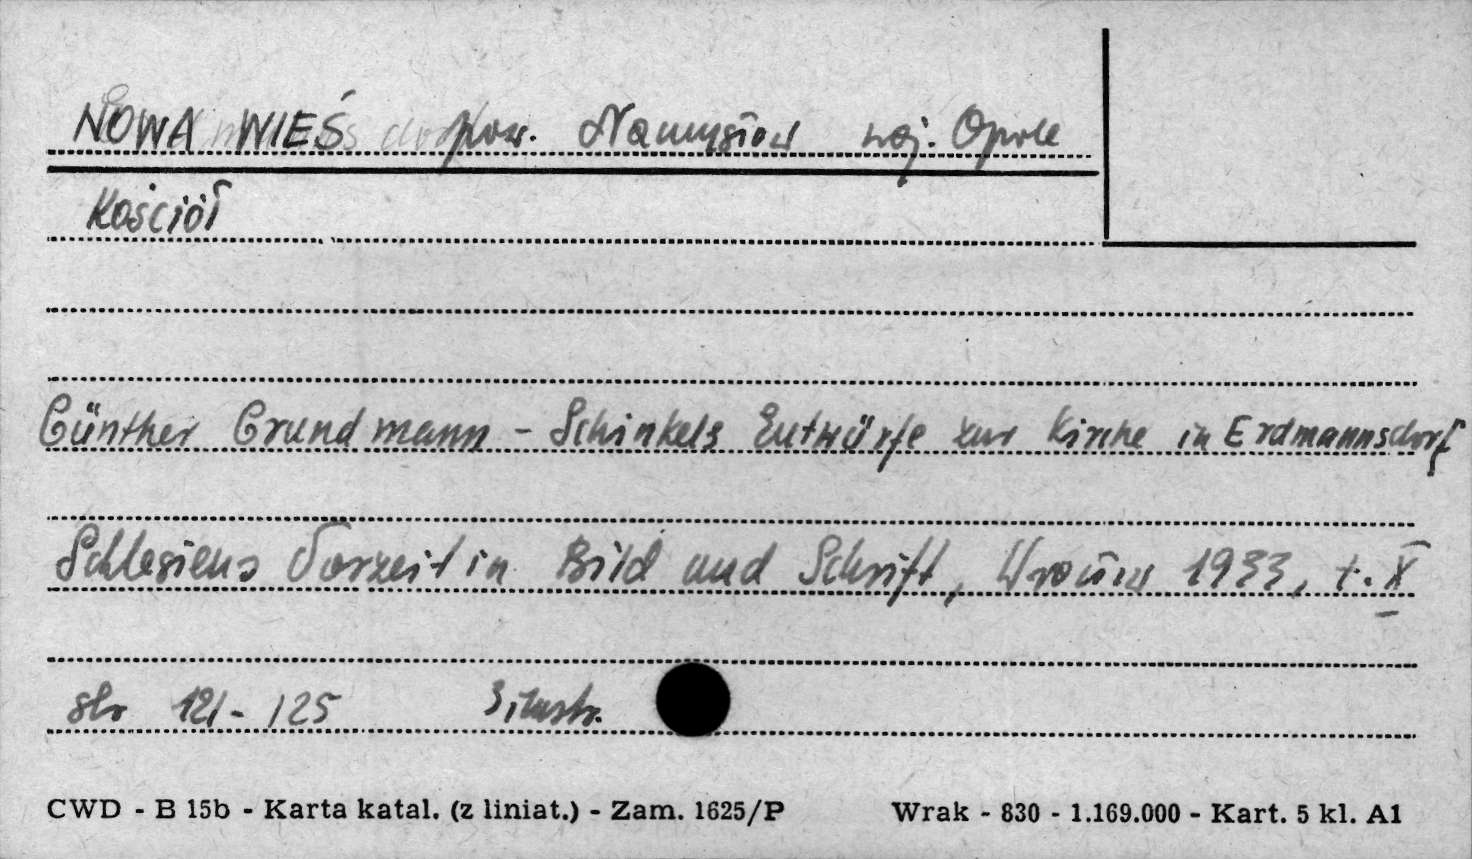 NOWA WIEŚ pow. Namysłów woj. Opole
Kościół
Günther Grundmann - Schinkels Entwürfe zur Kirche in Erdmannsdorf
Schlesiens Vorzeit in Bild und Schrift, Wrocław 1933, t. X
str 121-125 3 ilustr.
CWD - B 15b - Karta katal. (z liniat.) - Zam. 1625/P Wrak - 830 - 1.169.000 - Kart. 5 kl. A1